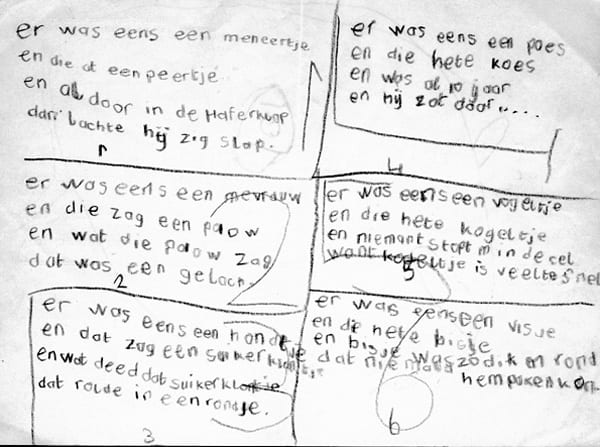 er was eens een meneertje
en die at een peertje
en al door in de Haferklap
dan lachte hij zig slap.
1
er was eens een mevrauw
en die zag een paow
en wat die paow zag
dat was een gelach.
2
er was eens een hondtje
en dat zag een suikerklontje
en wat deed dat suikerklontje
dat rolde in een rondje.
3
er was eens een poes
en die hete koes
en was al 10 jaar
en hij zat daar.....
4
er was eens een vogeltje
en die hete kogeltje
en niemant stopt m in de cel
want kogeltje is veel te snel
5
er was eens een visje
en die hete bisje
en bisje was zo dik en rond
dat niemand hem paken kon.
6